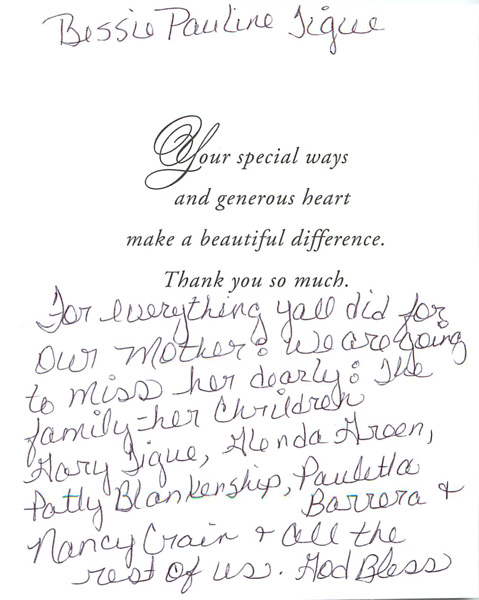 Bessie Pauline Tigue
Your special ways
and generous heart
make a beautiful difference.
Thank you so much.
For everything yall did for
our Mother: We are going
to miss her dearly: The
family-her Chrildren
Gary Tigue, Glenda Green,
Patty Blankenship, Pauletta
Barrera &
Nancy Crain & all the
rest of us. God Bless